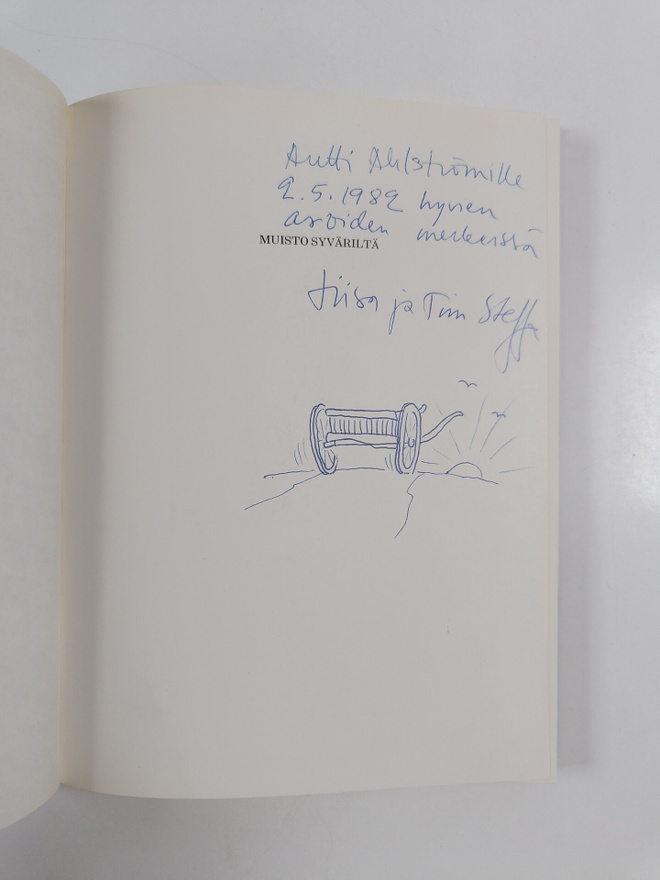 Antti Ahlströmille
2.5.1982 hyvien
asioiden merkeissä
MUISTO SYVÄRILTÄ
Liisa ja Tim Steffa